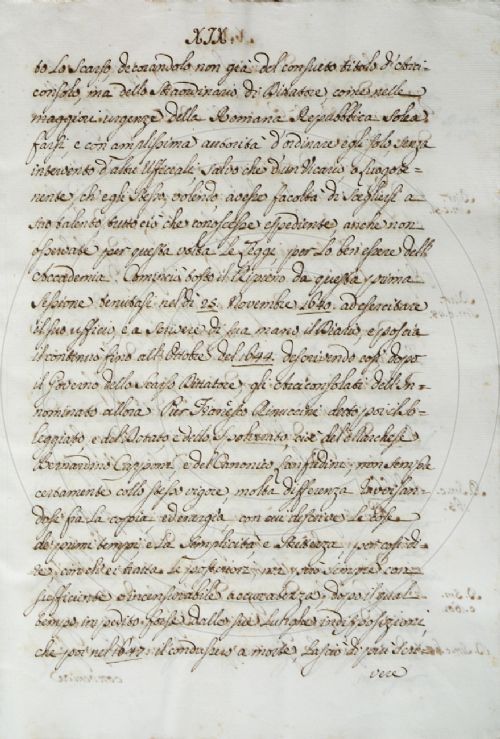 XIX.
to lo Scarso, decorandolo non già del consueto titolo d'Arci-
consolo, ma dello Straordinario di Dittatore come nelle
maggiori urgenze della Romana Repubblica solea
farsi, e con amplissima autorità d'ordinare egli solo senza
intervento d'altri Uffeciali, salvo che d'un Vicario o Luogote-
nente, ch'egli stesso volendo avesse facoltà di scegliersi a
suo talento tutto ciò che conoscesse espediente anche non
osservate per questa volta le Legge per lo ben essere dell'
Accademia. Cominciò tosto il Ripieno da questa prima
Sessione tenutasi nel dì 25. Novembre 1640. ad esercitare
il suo ufficio e a scrivere di sua mano il Diario, e poscia
il continuò fino all'Ottobre del 1644. descrivendo così dopo
il Governo dello Scarso Dittatore gli Arciconsolati dell'In-
nominato allora Pier Francesco Rinuccini detto poi il So-
leggiato e del Dotato e dello Spolverato cioè del Marchese
Bernardino Capponi e del Canonico Sanfiedini; non sempre
certamente collo stesso vigore molta differenza
dosi fra la copia ed energia con cui descrive le cose
de' primi tempi e la semplicità e per così di-
re, con ch'ei tratta le posteriori, ma sempre con
sufficiente o incensurabile accuratezza; dopo il qual
tempo impedito forse dalle sue indisposizioni
che poi nel 1647. il condussero a morte, lasciò di più scri-
vere